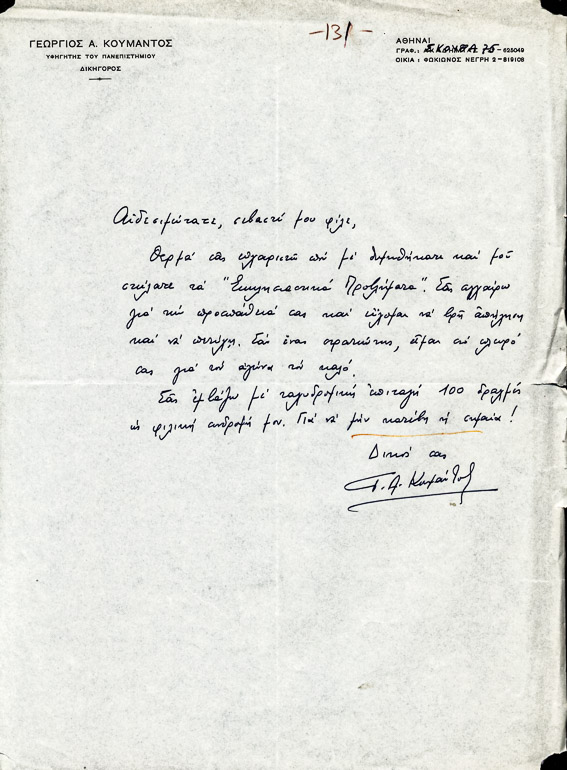 -131-
ΓΕΩΡΓΙΟΣ Α. ΚΟΥΜΑΝΤΟΣ
ΥΦΗΓΗΤΗΣ ΤΟΥ ΠΑΝΕΠΙΣΤΗΜΙΟΥ
ΔΙΚΗΓΟΡΟΣ
ΑΘΗΝΑΙ
ΓΡΑΦ.: ΣΚΟΥΦΑ 75 - 625049
ΟΙΚΙΑ : ΦΩΚΙΩΝΟΣ ΝΕΓΡΗ 2 - 819108
Αἰδεσιμώτατε, σεβαστέ μου φίλε,
Θερμά σᾶς εὐχαριστῶ πού μέ θυμηθήκατε καί μοῦ
στείλατε τά "Ἐκκλησιαστικά Προβλήματα". Σᾶς συγχαίρω
γιά τήν προσπάθειά σας καί εὔχομαι νά βρῆ ἀπήχηση
καί νά πετύχη. Σάν ἕνας στρατιώτης, εἶμαι στό πλευρό
σας γιά τόν ἀγώνα τόν καλό.
Σᾶς ἐμβάζω μέ ταχυδρομική ἐπιταγή 100 δραχμές
ὡς φιλική συνδρομή μου. Γιά νά μήν κατέβη ἡ σημαία!
Δικός σας
Γ. Α. Κουμάντος